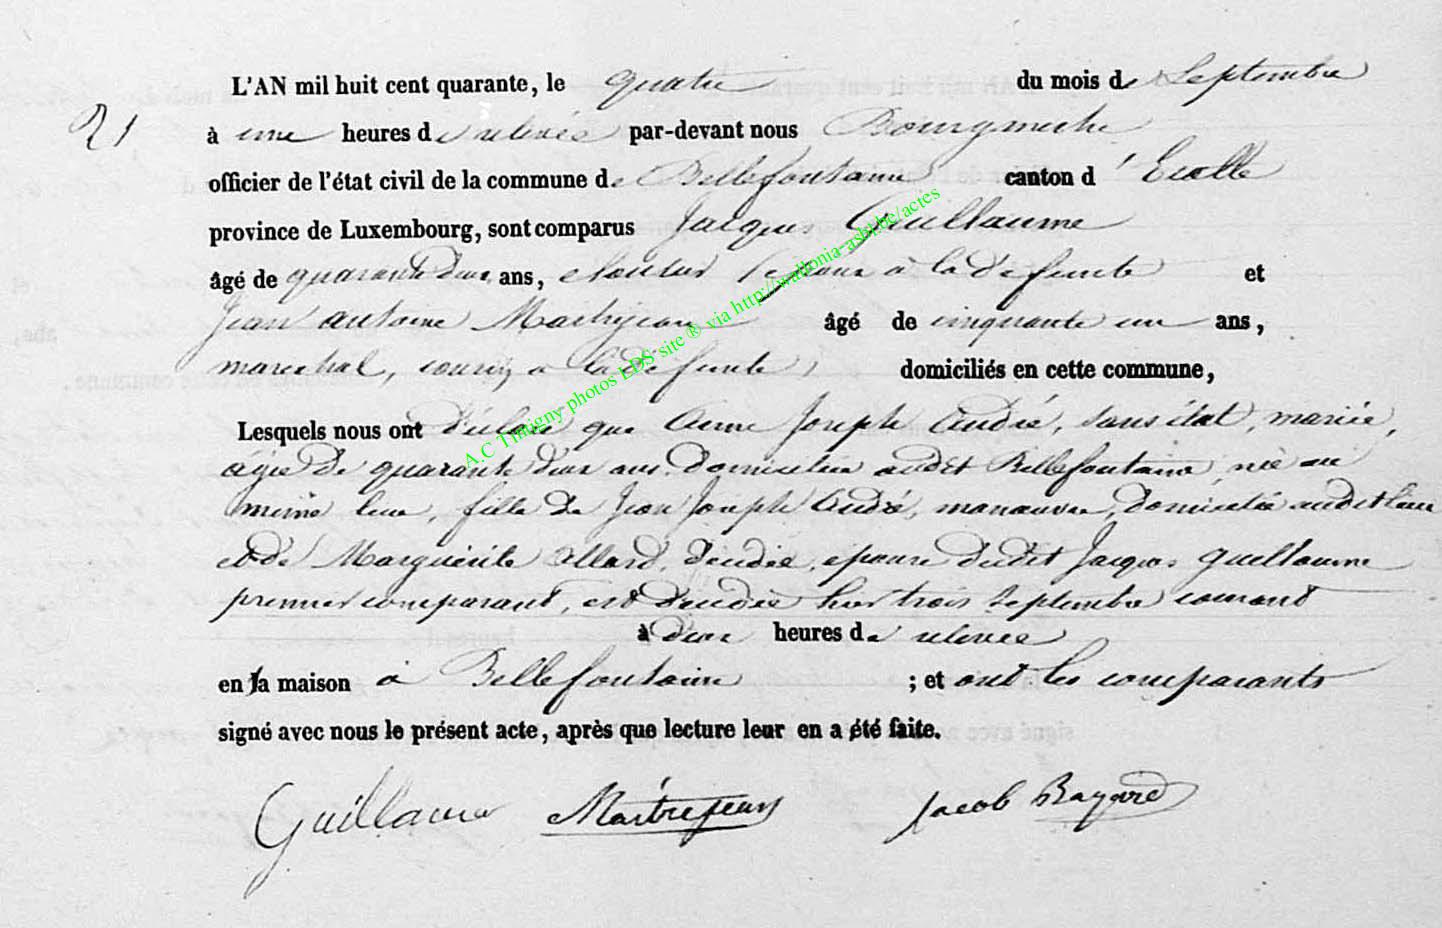 L'AN mil huit cent quarante, le quatre du mois de Septembre
21
à une heures de relevée par-devant nous Bourgmestre
officier de l'état civil de la commune de Bellefontaine canton d'Etalle
province de Luxembourg, sont comparus Jacques Guillaume
âgé de quarante deux ans, époux à la défunte et
Jean antoine Maitrejean âgé de cinquante un ans,
marechal, cousin a la défunte, domiciliés en cette commune,
Lesquels nous ont déclaré que Anne Joseph André, sans état, mariée,
agée de quarante deux ans domiciliée audit Bellefontaine, née au
même lieu, fille de Jean Joseph André, manœuvre, domicilié audit lieu
et de Marguerite Allard, décédée, épouse dudit Jacques Guillaume
premier comparant, est décédée hier trois Septembre courant
à deux heures de relevée
en la maison à Bellefontaine ; et ont les comparants
signé avec nous le présent acte, après que lecture leur en a été faite.
Guillaume Maitrejean Jacob Bayard
A.C Tintigny photos LDS site ® via http://wallonia-asbl.be/actes